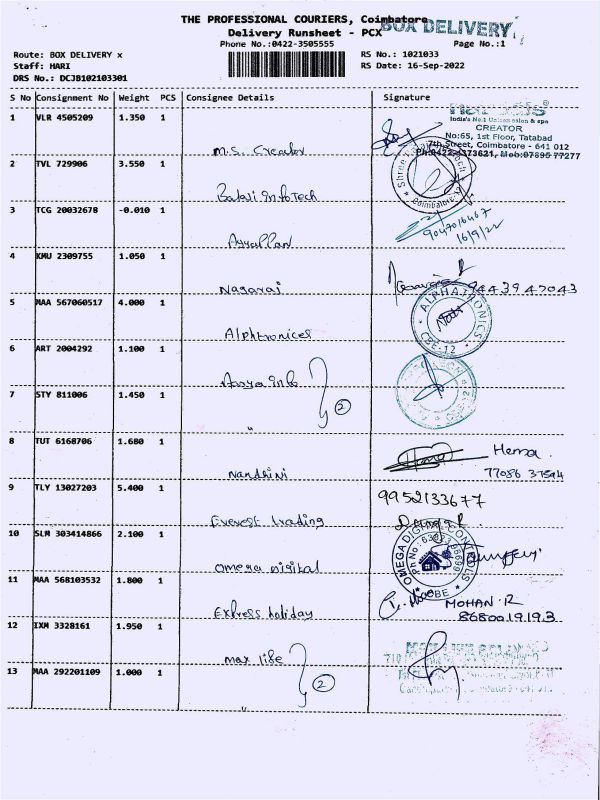 THE PROFESSIONAL COURIERS, Coimbatore
BOX DELIVERY
Delivery Runsheet - PCX
Phone No.:0422-3505555
Page No.:1
Route: BOX DELIVERY x
RS No.: 1021033
Staff: HARI
RS Date: 16-Sep-2022
DRS No.: DCJB102103301
S No Consignment No Weight PCS Consignee Details Signature
1 VLR 4505209 1.350 1
India's No.1 Unisex salon & spa
CREATOR
No:65, 1st Floor, Tatabad
7th Street, Coimbatore - 641 012
M.S. Creator
2 TVL 729906 3.550 1
Balaji Infotech
Coimbatore
3 TCG 20032678 -0.010 1
9047016467
16/9/22
Ayyappan
4 KMU 2309755 1.050 1
Nagaraj
94439 47043
5 MAA 567060517 4.000 1
ALPHATRONICS
CBE-12
Alphtronices
6 ART 2004292 1.100 1
Aarya info
7 STY 811006 1.450 1
2
"
8 TUT 6168706 1.680 1
Hema
77086 37594
Nandhini
9 TLY 13027203 5.400 1
9952133677
Everest trading
10 SLM 303414866 2.100 1
OMEGA DIGITAL CONTROLS
omega Digital
11 MAA 568103532 1.800 1
MOHAN.R
8680019193
Express holiday
12 IXM 3328161 1.950 1
max life
13 MAA 292201109 1.000 1
2
"